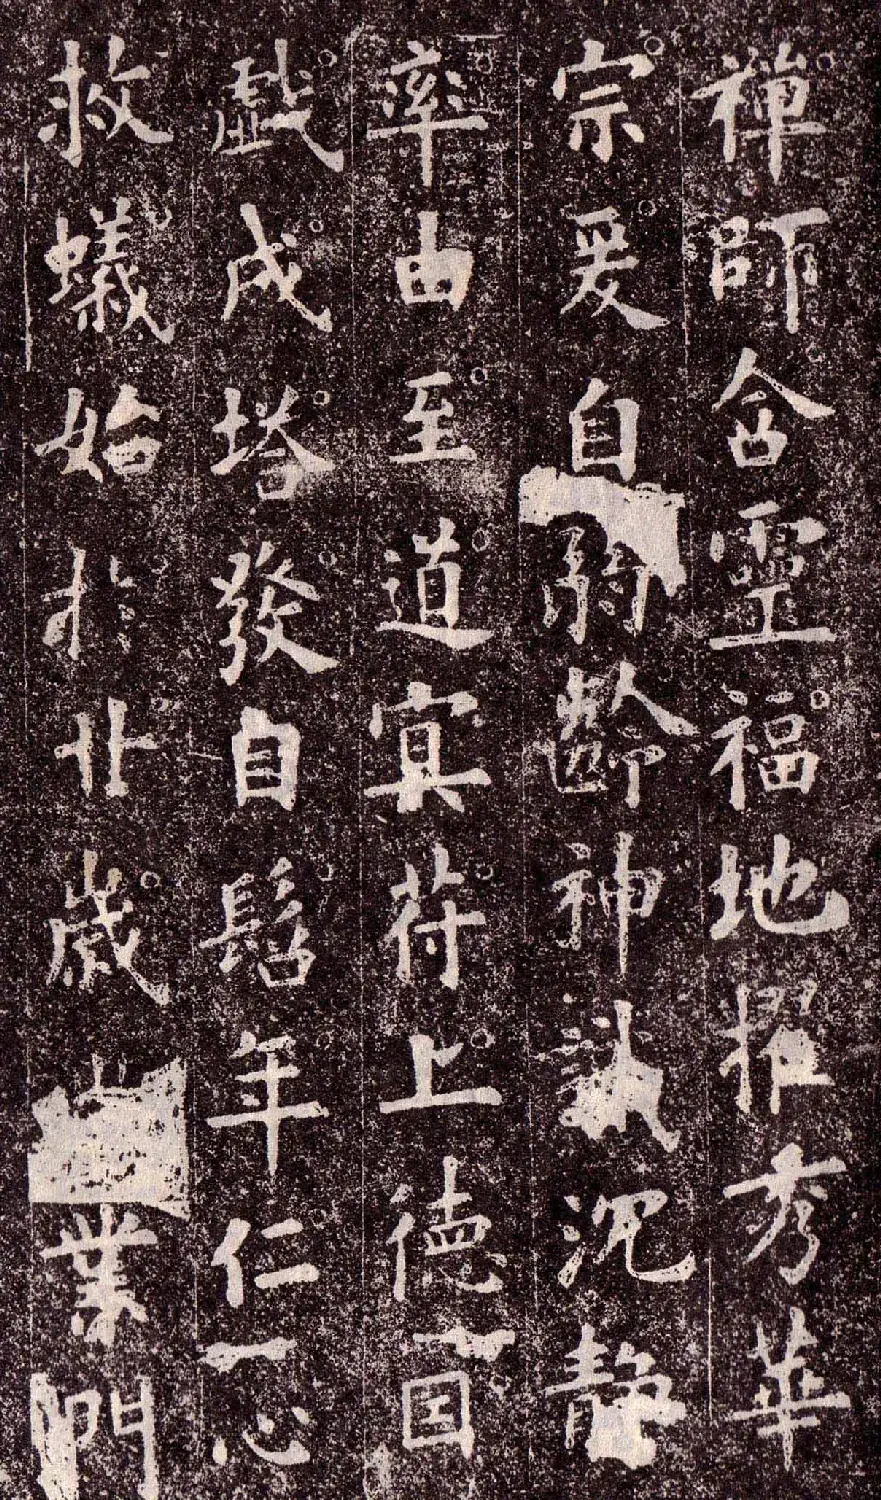 禪師含靈福地擢秀華
宗爰自弱齡神識沉靜
率由至道冥苻上德因
戲成塔發自髫年仁心
救蟻始於廿歲業門